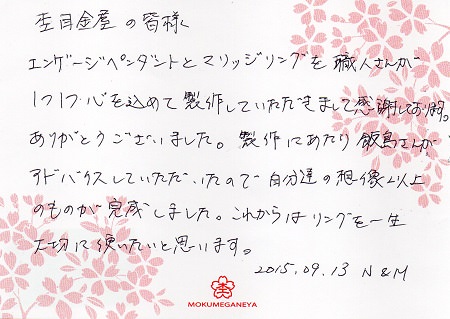 杢目金屋の皆様
エンゲージペンダントとマリッジリングを職人さんが
1つ1つ心を込めて製作していただきまして感謝しております。
ありがとうございました。製作にあたり飯島さんが
アドバイスしていただいたので自分達の想像以上
のものが完成しました。これからはリングを一生
大切に使いたいと思います。
2015.09.13 N&M
MOKUMEGANEYA